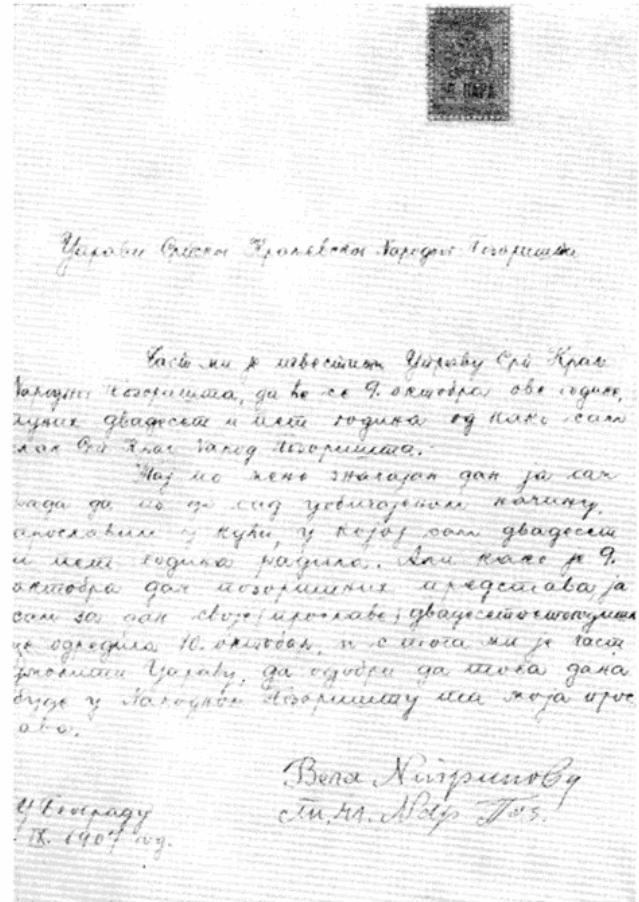 ПАРА
Управи Српског Краљевског Народног Позоришта
Част ми је известити Управу Срп Краљ
Народног Позоришта, да ће се 9. октобра ове године,
пуних двадесет и пет година од како сам
члан Срп Краљ Народ Позоришта.
Тај по мене значајан дан ја сам
рада да по до сад уобичајеном начину,
прославим у кући, у којој сам двадесет
и пет година радила. Али како је 9.
октобра дан позоришних представа ја
сам за дан своје прославе двадесетпетогодишњи
це одредила 10. октобар, и с тога ми је част
умолити Управу, да одобри да тога дана
буде у Народном Позоришту та моја прос
ава.
Вела Нигринову
чл. Нар Поз.
У Београду
IX. 1907 год.